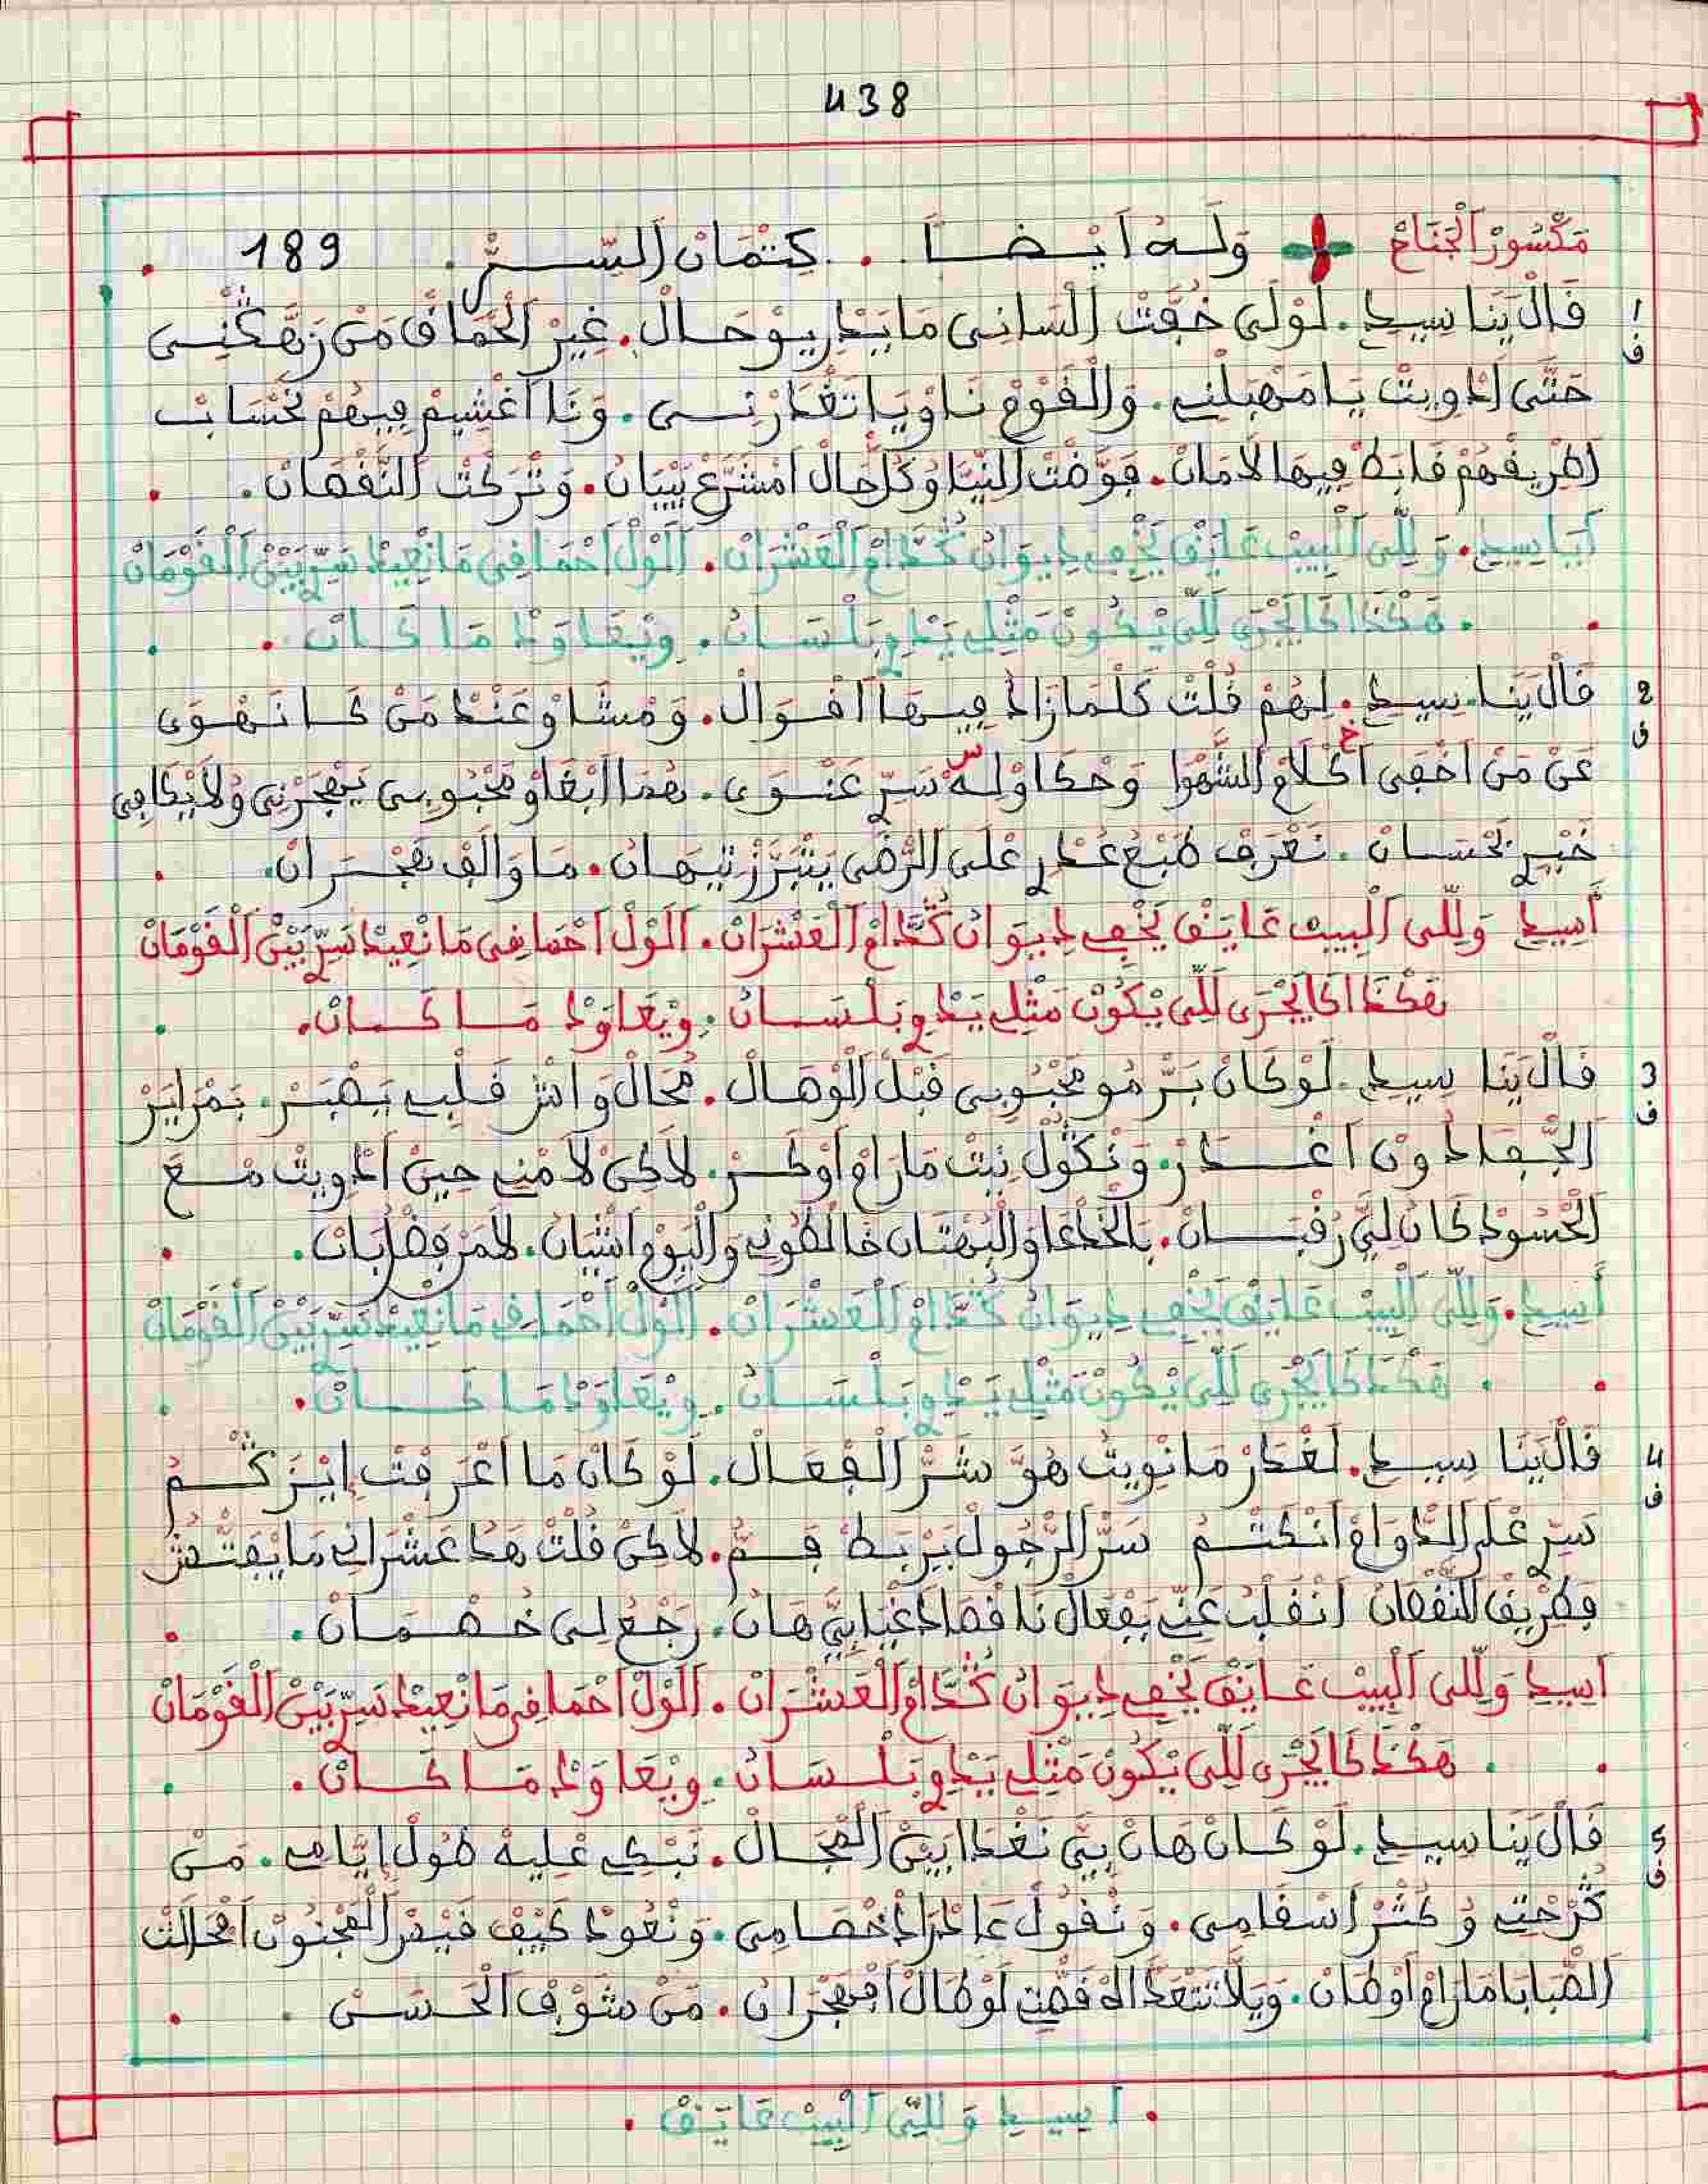 438
مَكْسُورْ اَلْجْنَاحْ وَلَهُ أَيْضًا . كِتْمَانْ اَلسِّرّْ . 189
1 قَالْ يَنَا سِيدِي . لَوْلَى خُفْتْ اَلْسَانِي مَا يَدْرِيوْ حَالْ . غِيرْ اَلْحْمَاقْ مَنْ
ف حَتَّى اَدْوِيتْ يَا مَهْبَلْنِي . وَالْقَوْمْ نَاوْيَا تَغْدَرْنِي . وَنَا اَغْشِيمْ فِيهُمْ نَحْسَابْ
اَطْرِيقْهُمْ فَايْدْ فِيهَا لَامَانْ . فَوّْضْتْ اَلنِّيَّا وُكُلّْ حَالْ اَمْشَرَّعْ بَبْيَانْ . وَتْرَكْتْ اَلنُّقْصَانْ .
أَيَا سِيدِي . وَلِلِّي اَلْبِيبْ عَايَقْ يَخْفِي دِيوَانُ كُدَّامْ اَلْعَشْرَانْ . اَلَوّْلْ اَحْمَاقِي مَا نْعِيدْ سَرِّي بَيْنْ اَلْقَوْمَانْ
. هَكْذَا كَا يَجْرَى لَلِّي يْكُونْ مَثْلِي يَدْوِي بَلْسَانُ . وِيْعَاوَدْ مَا كَانْ .
2 قَالْ يَنَا سِيدِي . لِهُمْ قُلْتْ كَلْمَا زَادُ فِيهَا اَقْوَالْ . وَمْشَاوْ عَنْدْ مَنْ كَا نَهْوَى
ف عَنْ مَنْ اَخْفَى اَكْلَامْ اَلشَّهْوَا وَحْكَاوْ لَهْ سَرِّي عَنْوَى . هُمَا اَبْغَاوْ مَحْبُوبِي يَهْجَرْنِي وُلَا يْكَافِي
خَيْرِي بَحْسَانْ . نَعْرَفْ طَبْعْ غْدَرِي عْلَى اَلرّْضَى يَتْبَرَّزْ تِيهَانْ . مَا وَالَفْ هَجْرَانْ .
أَسِيدِي وَلِلِّي اَلْبِيبْ عَايَقْ يَخْفِي دِيوَانُ كُدَّامْ اَلْعَشْرَانْ . اَلَوّْلْ اَحْمَاقِي مَا نْعِيدْ سَرِّي بَيْنْ اَلْقَوْمَانْ
هَكْذَا كَا يَجْرَى لَلِّي يْكُونْ مَثْلِي يَدْوِي بَلْسَانُ . وِيْعَاوَدْ مَا كَانْ .
3 قَالْ يَنَا سِيدِي . لَوْ كَانْ بَرّْمُو مَحْبُوبِي قَبْلْ اَلْوْصَالْ . مُحَالْ وَاشْ قَلْبِي يَصْبَرْ . بَمْرَايَرْ
ف اَلْجّْفَا دُونْ اَغْدَرْ . وَنْكُولْ نِيتْ مَا رَامْ اَوْكَرْ . لَاكِنْ لَا مْنِي حِينْ اَدْوِيتْ مْعَ
اَلْحْسُودْ كَانْ لِيَّ رُقْبَانْ . بَالْخَدْعَا وَالْبُهْتَانْ خَالْطُونِي وَالْيَوْمْ اَشْيَانْ . لَامَرْ
أَسِيدِي . وَلِلِّي اَلْبِيبْ عَايَقْ يَخْفِي دِيوَانُ كُدَّامْ اَلْعَشْرَانْ . اَلَوّْلْ اَحْمَاقِي مَا نْعِيدْ سَرِّي بَيْنْ اَلْقَوْمَانْ
. هَكْذَا كَا يَجْرِي لَلِّي يْكُونْ مَثْلِي يَدْوِي بَلْسَانُ . وِيْعَاوَدْ مَا كَانْ .
4 قَالْ يَنَا سِيدِي . لَغْدَرْ مَا نْوِيتْ هُوَّ شَرّْ اَلْفْعَالْ . لَوْ كَانْ مَا اَعْرَفْتْ
ف سَرِّي عْلَى اَلدّْوَامْ اَنْكَتْمُ سَرّْ اَلرّْجُولْ يَرْبَطْ فَمُّ . لَاكِنْ قُلْتْ هَدَا عَشْرَانِي مَا يْفَتّْشْ
فَطْرِيقْ اَلنُّقْصَانْ اَنْقْلَبْ عَنِّي بَفْعَالْ نَاقْصَا بِيَّ هَانْ . رَجْعْ لِي خُصْمَانْ .
اَسِيدِي وَلِلِّي اَلْبِيبْ عَايَقْ يَخْفِي دِيوَانُ كُدَّامْ اَلْعَشْرَانْ . اَلَوّْلْ اَحْمَاقِي مَا نْعِيدْ سَرِّي بَيْنْ اَلْقَوْمَانْ
. هَكْذَا كَا يَجْرَى لَلِّي يْكُونْ مَثْلِي يَدْوِي بَلْسَانُ . وِيْعَاوَدْ مَا كَانْ .
5 قَالْ يَنَا سِيدِي . لَوْ كَانْ هَانْ بِيَّ نَغْدَا بَيْنْ اَلْهْجَالْ . نَبْكِي عْلِيهْ طُولْ اِيَّامِي . مَنْ
ف كُرْحْتِي وُكَثْرْ اَسْقَامِي . وَنْقُولْ عَا خْصَامِي . وَنْعُودْ كِيفْ قَيْسْ اَلْمَجْنُونْ
اَلصّْبَابَا مَا رَامْ اَوْطَانْ . وِيلَا نَتْعَدَّا لَهْ قَصّْتِي لَوْ طَالْ اَفْهَجْرَانُ . مَنْ شَوْفْ اَلْحَسَنْ .
. اَسِيدِي وَلِلِّي اَلْبِيبْ عَايَقْ .